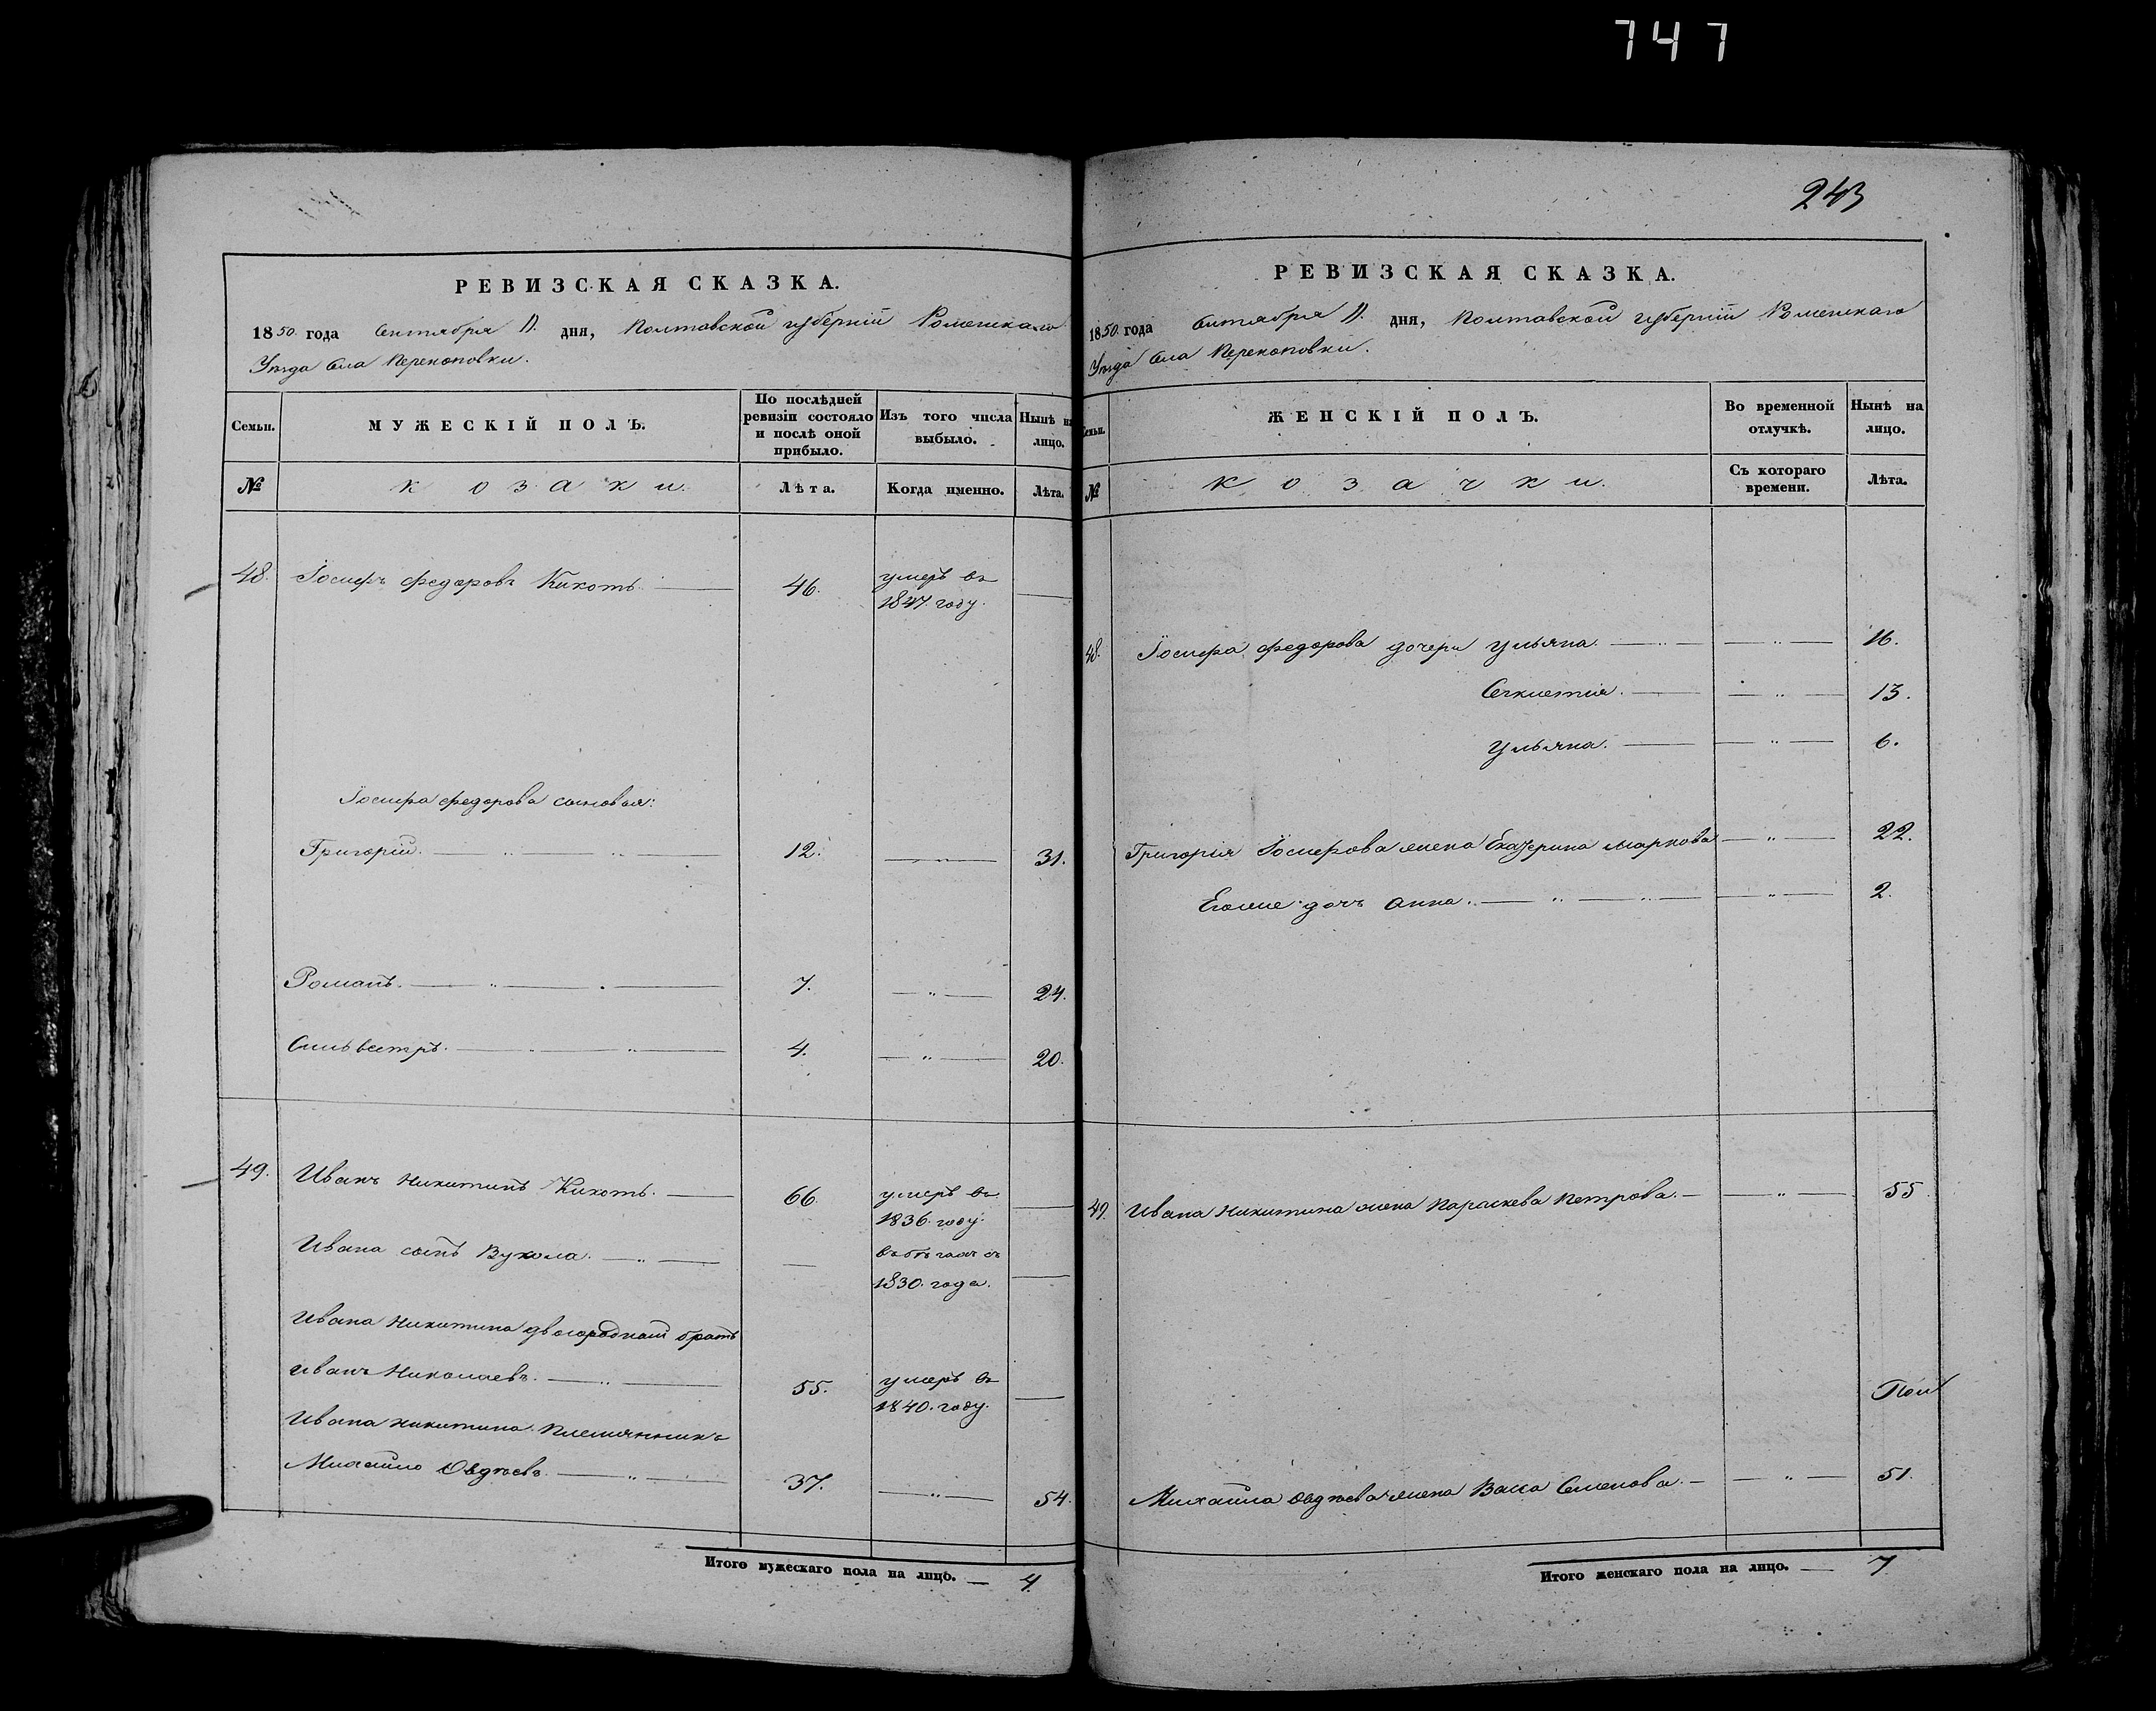 747
243
РЕВИЗСКАЯ СКАЗКА.
1850. года Сентября дня, Полтавской губерніи Роменскаго
Уѣзда Села Перекоповки.
Семьи.
МУЖЕСКІЙ ПОЛЪ.
По послѣдней ревизіи состояло и послѣ оной прибыло.
Изъ того числа выбыло.
Нынѣ на лицо.
№
Козаки.
Лѣта.
Когда именно.
Лѣта.
48. Іосифъ Федоровъ Кикоть. 46. умеръ въ
1847. году.
Іосифа Федорова сыновья:
Григорій. 12. 31.
Романъ. 7. 24.
Сильвестръ. 4. 20.
49. Иванъ Никитинъ Кикоть. 66. умеръ въ
1836. году.
Ивана сынъ Вукола. въ бѣгахъ съ
1830. года.
Ивана Никитина двоюродный братъ
Иванъ Николаевъ. 55. умеръ въ
1840. году.
Ивана Никитина племянникъ
Михайло Овдѣевъ. 37. 54.
Итого мужескаго пола на лицо. 4.
РЕВИЗСКАЯ СКАЗКА.
1850. года Сентября дня, Полтавской губерніи Роменскаго
Уѣзда Села Перекоповки.
Семьи.
ЖЕНСКІЙ ПОЛЪ.
Во временной отлучкѣ.
Нынѣ на лицо.
№
Козачки.
Съ котораго времени.
Лѣта.
48. Іосифа Федорова дочери Ульяна. 16.
13.
Ульяна. 6.
Григорія Іосифова жена Екатерина Маркова 22.
Егоже дочь Анна. 2.
49. Ивана Никитина жена Параскева Петрова. 55
Михайла Овдѣева жена Васса Семенова. 51.
Итого женскаго пола на лицо. 7